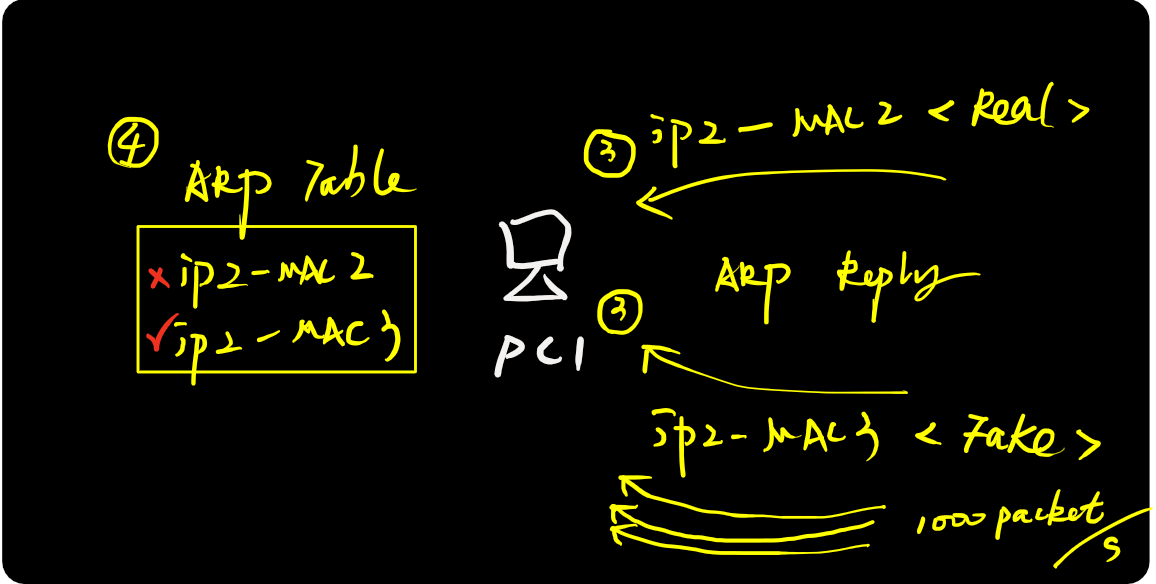 ④
ARP Table
× ip2-MAC2
✓ ip2-MAC3
PC1
③ ip2-MAC2 < Real >
ARP Reply
③
ip2-MAC3 < Fake >
1000 packet/s